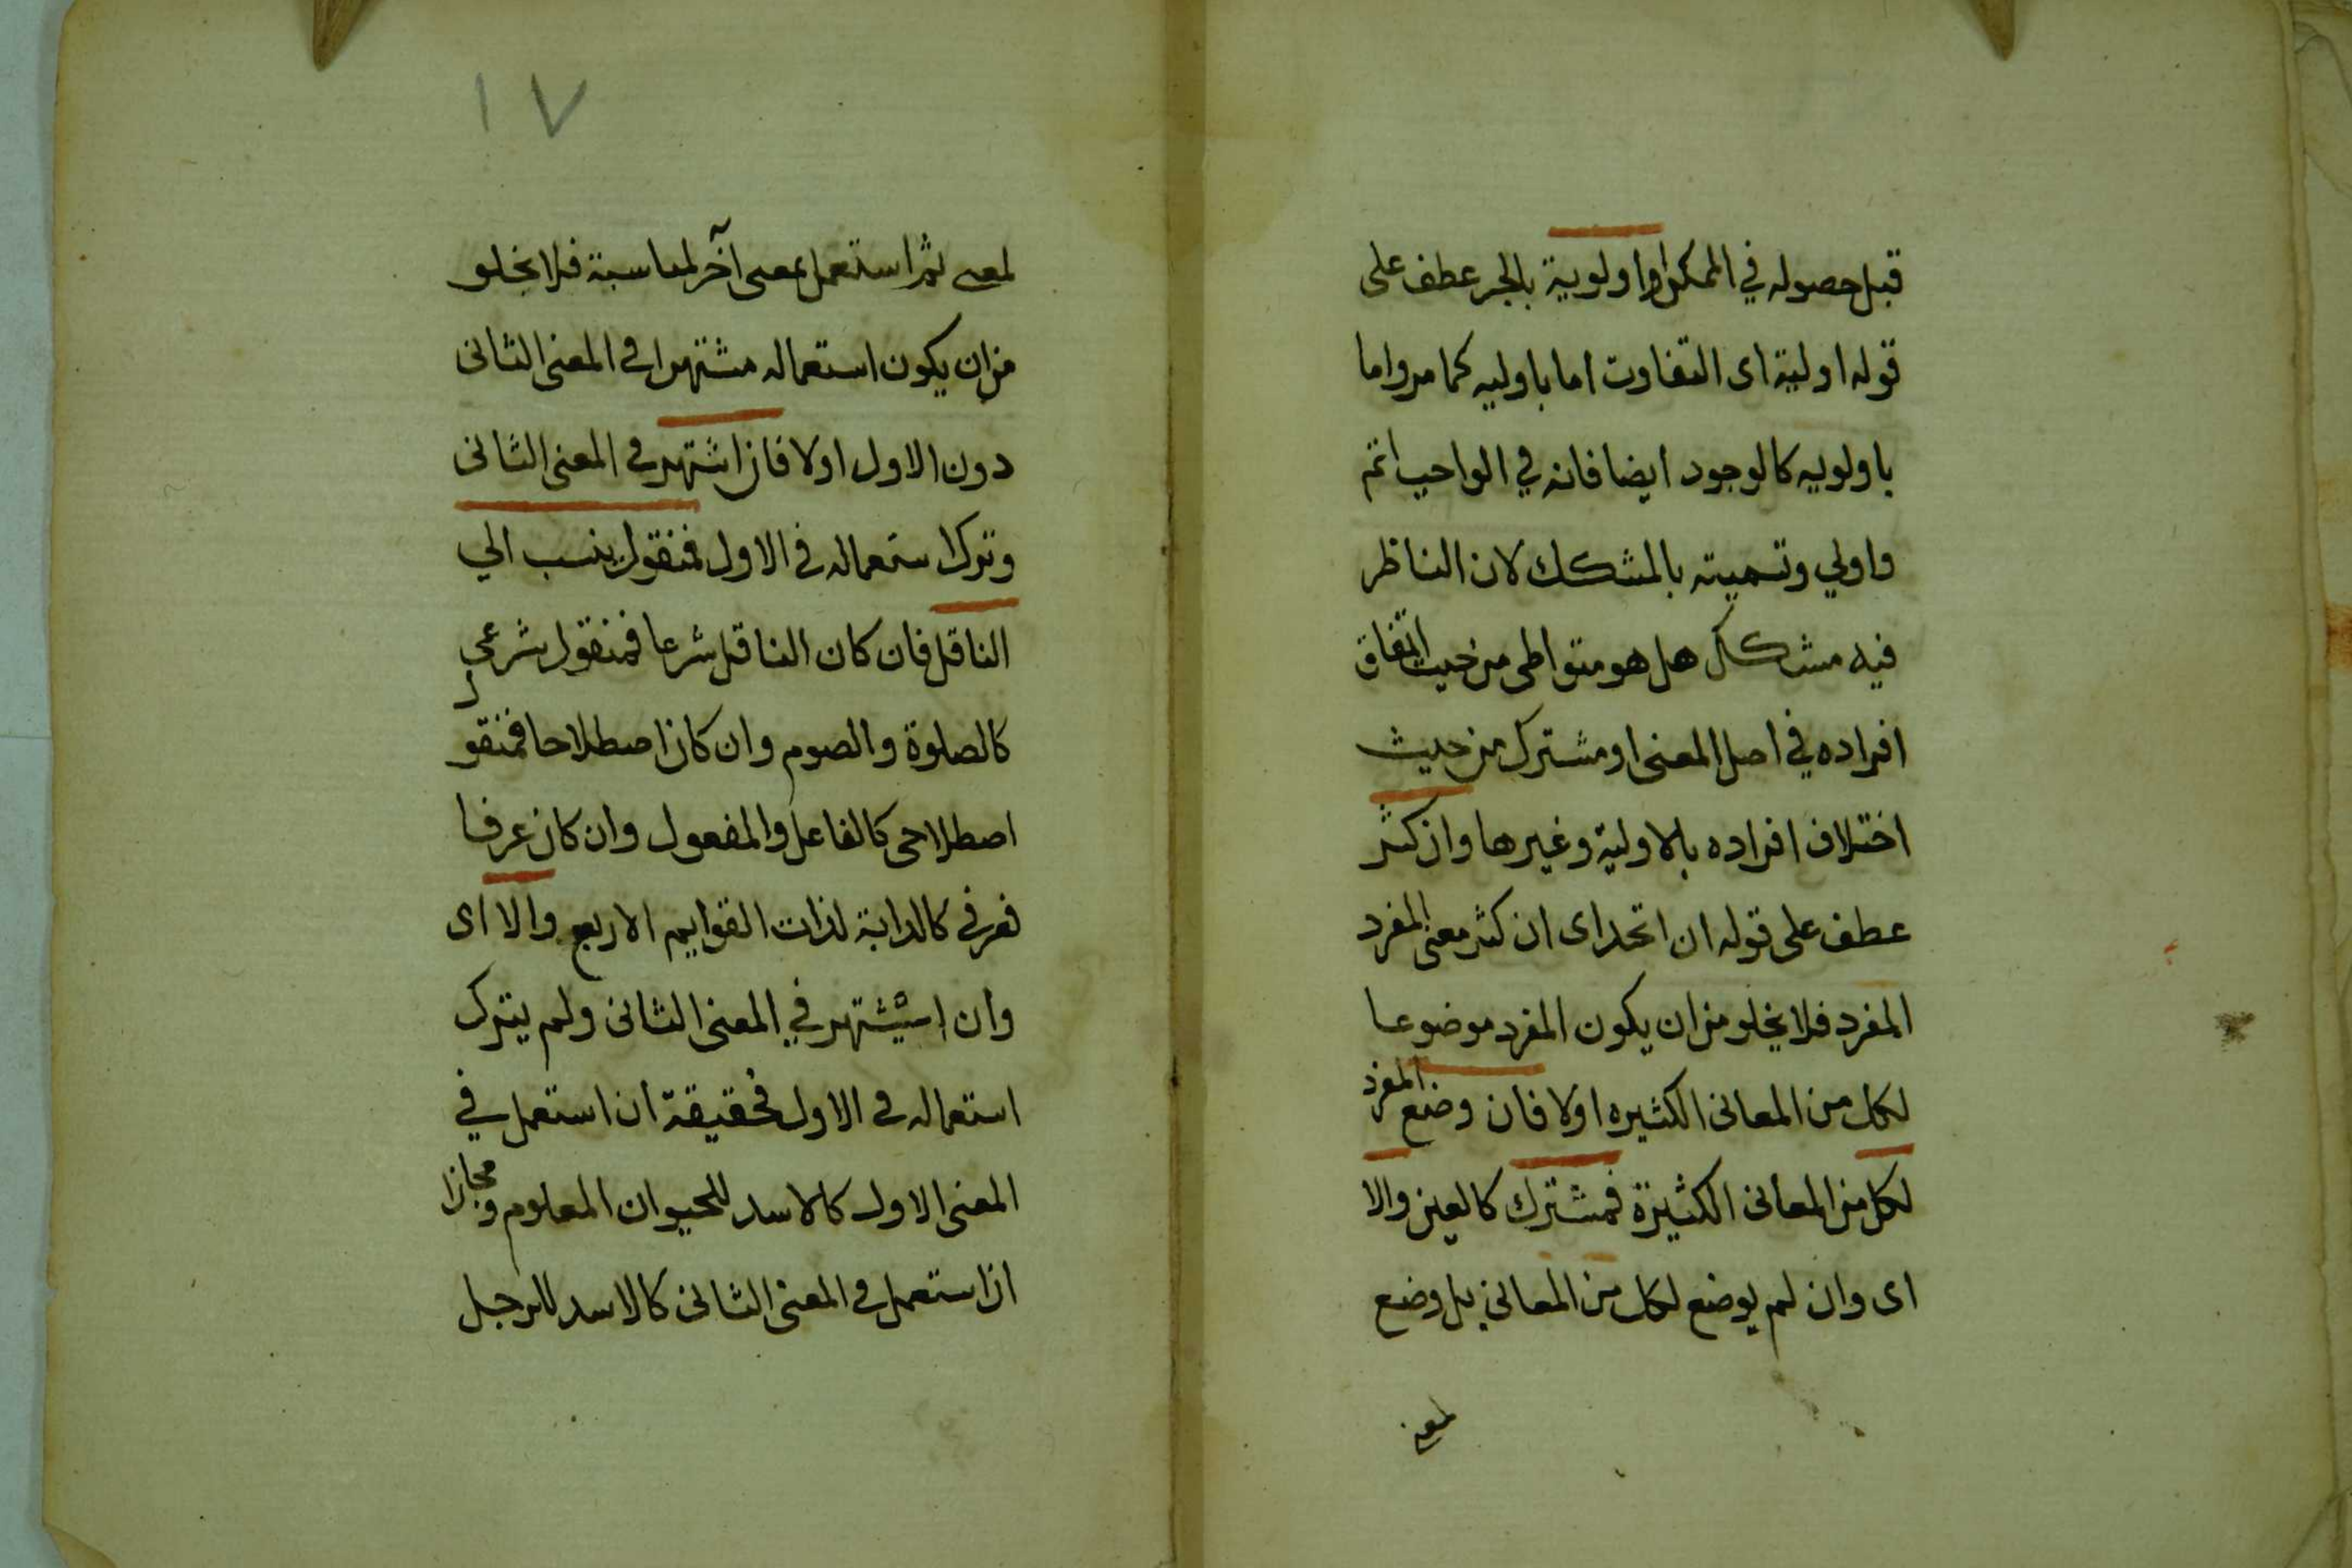 قبل حصوله في الممكن او اولوية بالجر عطف على
قوله اولية اى التفاوت اما باوليه كما مر واما
باولويه كالوجود ايضا فانه في الواجب اتم
واولي وتسميته بالمشكك لان الناظر
فيه مشكك هل هو متواطى من حيث اتفاق
افراده في اصل المعنى او مشترك من حيث
اختلاف افراده بالاولية وغيرها وان كثر
عطف على قوله ان اتحد اى ان كثر معنى المفرد
المفرد فلا يخلو من ان يكون المفرد موضوعا
لكل من المعانى الكثيره اولا فان وضع المفرد
لكل من المعانى الكثيرة فمشترك كالعين والا
اى وان لم يوضع لكل من المعاني بل وضع
لمعنى
١٧
لمعنى ثم استعمل بمعنى آخر لمناسبة فلا يخلو
من ان يكون استعماله مشتهرا في المعنى الثانى
دون الاول اولا فان اشتهر في المعنى الثانى
وترك استعماله في الاول فمنقول ينسب الي
الناقل فان كان الناقل شرعا فمنقول شرعي
كالصلوة والصوم وان كان اصطلاحا فمنقول
اصطلاحى كالفاعل والمفعول وان كان عرفا
فعرفي كالدابة لذات القوايم الاربع والا اى
وان اشتهر في المعنى الثانى ولم يترك
استعماله في الاول فحقيقة ان استعمل في
المعنى الاول كالاسد للحيوان المعلوم ومجازا
ان استعمل في المعنى الثانى كالاسد للرجل